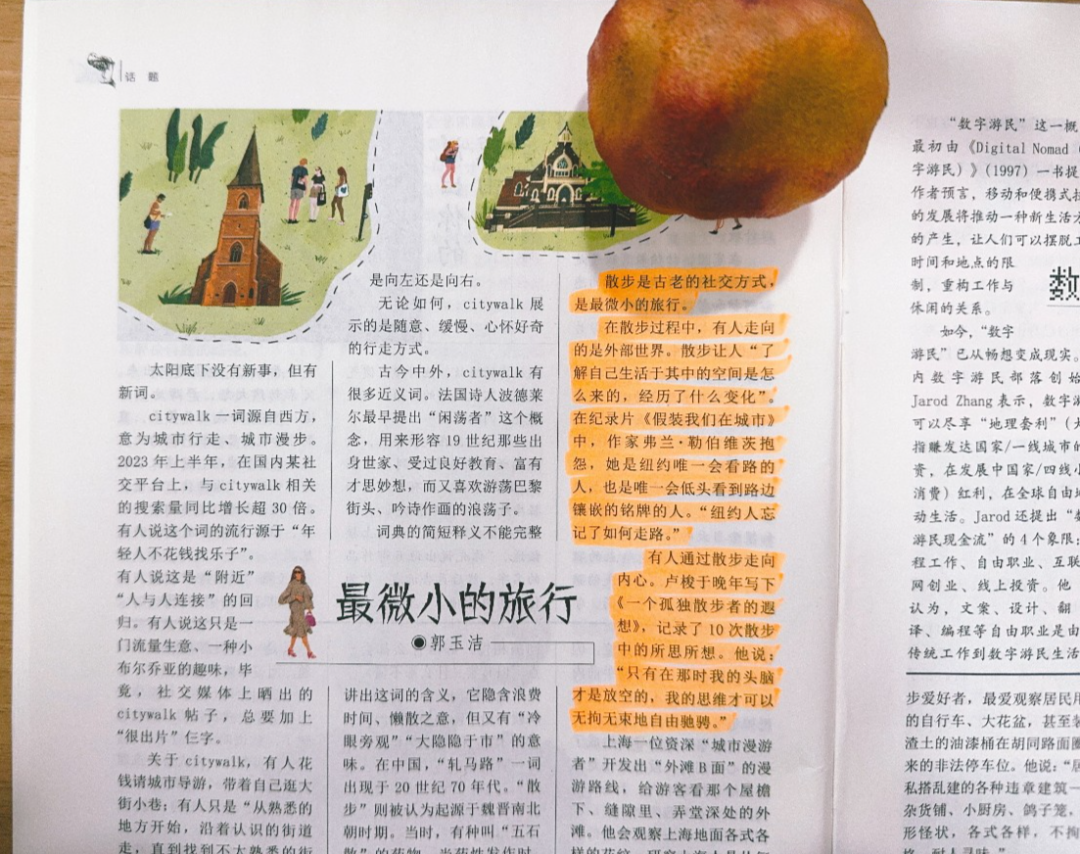 话题
太阳底下没有新事，但有
新词。
citywalk 一词源自西方，
意为城市行走、城市漫步。
2023 年上半年，在国内某社
交平台上，与 citywalk 相关
的搜索量同比增长超 30 倍。
有人说这个词的流行源于“年
轻人不花钱找乐子”。
有人说这是“附近”
“人与人连接”的回
归。有人说这只是一
门流量生意、一种小
布尔乔亚的趣味，毕
竟，社交媒体上晒出的
citywalk 帖子，总要加上
“很出片”仨字。
关于 citywalk，有人花
钱请城市导游，带着自己逛大
街小巷；有人只是“从熟悉的
地方开始，沿着认识的街道
走，直到找到不太熟悉的街
是向左还是向右。
无论如何，citywalk 展
示的是随意、缓慢、心怀好奇
的行走方式。
古今中外，citywalk 有
很多近义词。法国诗人波德莱
尔最早提出“闲荡者”这个概
念，用来形容 19 世纪那些出
身世家、受过良好教育、富有
才思妙想，而又喜欢游荡巴黎
街头、吟诗作画的浪荡子。
词典的简短释义不能完整
最微小的旅行
◉郭玉洁
讲出这词的含义，它隐含浪费
时间、懒散之意，但又有“冷
眼旁观”“大隐隐于市”的意
味。在中国，“轧马路”一词
出现于 20 世纪 70 年代。“散
步”则被认为起源于魏晋南北
朝时期。当时，有种叫“五石
散”的药物，当药性发作时，
散步是古老的社交方式，
是最微小的旅行。
在散步过程中，有人走向
的是外部世界。散步让人“了
解自己生活于其中的空间是怎
么来的，经历了什么变化”。
在纪录片《假装我们在城市》
中，作家弗兰·勒伯维茨抱
怨，她是纽约唯一会看路的
人，也是唯一会低头看到路边
镶嵌的铭牌的人。“纽约人忘
记了如何走路。”
有人通过散步走向
内心。卢梭于晚年写下
《一个孤独散步者的遐
想》，记录了 10 次散步
中的所思所想。他说：
“只有在那时我的头脑
才是放空的，我的思维才可以
无拘无束地自由驰骋。”
上海一位资深“城市漫游
者”开发出“外滩 B 面”的漫
游路线，给游客看那个屋檐
下、缝隙里、弄堂深处的外
滩。他会观察上海地面各式各
“数字游民”这一概
最初由《Digital Nomad（
字游民）》（1997）一书提
作者预言，移动和便携式技
的发展将推动一种新生活方
的产生，让人们可以摆脱工
时间和地点的限
制，重构工作与
休闲的关系。
数
如今，“数字
游民”已从畅想变成现实。
内数字游民部落创始
Jarod Zhang 表示，数字游
可以尽享“地理套利”（
指赚发达国家/一线城市的
资，在发展中国家/四线小
消费）红利，在全球自由地
动生活。Jarod 还提出“数
游民现金流”的 4 个象限：
程工作、自由职业、互联
网创业、线上投资。他
认为，文案、设计、翻
译、编程等自由职业是由
传统工作到数字游民生活
步爱好者，最爱观察居民用
的自行车、大花盆，甚至装
渣土的油漆桶在胡同路面圈
来的非法停车位。他说：“居
私搭乱建的各种违章建筑—
杂货铺、小厨房、鸽子笼，
形怪状，各式各样，不拘